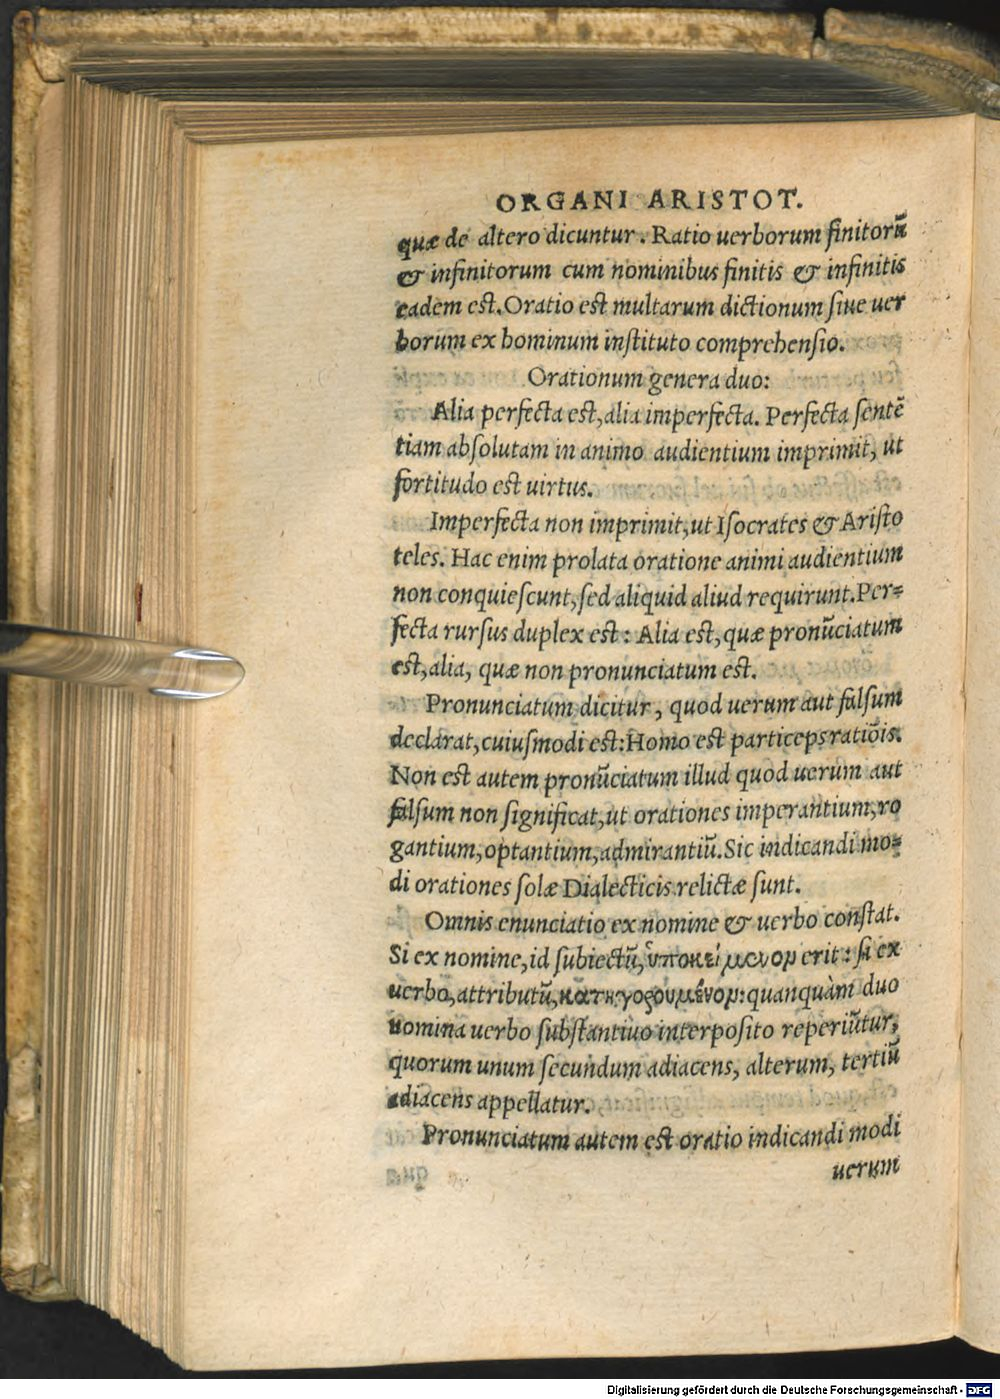 ORGANI ARISTOT.
quæ de altero dicuntur. Ratio uerborum finitorũ
& infinitorum cum nominibus finitis & infinitis
eadem est. Oratio est multarum dictionum siue uer
borum ex hominum instituto comprehensio.
Orationum genera duo:
Alia perfecta est, alia imperfecta. Perfecta sentẽ
tiam absolutam in animo audientium imprimit, ut
fortitudo est uirtus.
Imperfecta non imprimit, ut Isocrates & Aristo
teles. Hac enim prolata oratione animi audientium
non conquiescunt, sed aliquid aliud requirunt. Per=
fecta rursus duplex est: Alia est, quæ pronũciatum
est, alia, quæ non pronunciatum est.
Pronunciatum dicitur, quod uerum aut falsum
declarat, cuiusmodi est: Homo est particeps ratiõis.
Non est autem pronũciatum illud quod uerum aut
falsum non significat, ut orationes imperantium, ro
gantium, optantium, admirantiũ. Sic indicandi mo=
di orationes solæ Dialecticis relictæ sunt.
Omnis enunciatio ex nomine & uerbo constat.
Si ex nomine, id subiectũ, ὑποκείμενον erit: si ex
uerbo, attributũ, κατηγορουμένον: quanquàm duo
nomina uerbo substantiuo interposito reperiũtur,
quorum unum secundum adiacens, alterum, tertiũ
adiacens appellatur.
Pronunciatum autem est oratio indicandi modi
uerum
Digitalisierung gefördert durch die Deutsche Forschungsgemeinschaft - DFG